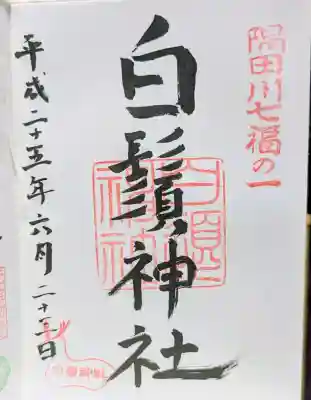 隅田川七福の一
白鬚神社
平成二十五年六月二十三日